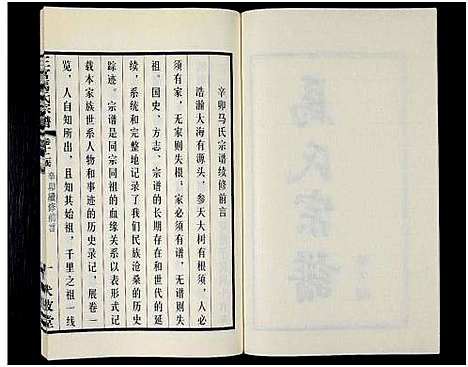 辛卯马氏宗谱续修前言
浩瀚大海有源头，参天大树有根须，人必
须有家，无家则失根。家必须有谱，无谱则失
祖。国史、方志、宗谱的长期存在和世代的延
续，系统和完整地记录了我们民族沧桑的历史
踪迹。宗谱是同宗同祖的血缘关系以表形式记
载本家族世系人物和事迹的历史录记，展卷一
览，人自知所出，且知其始祖，千里之祖一线
辛卯续修前言
一